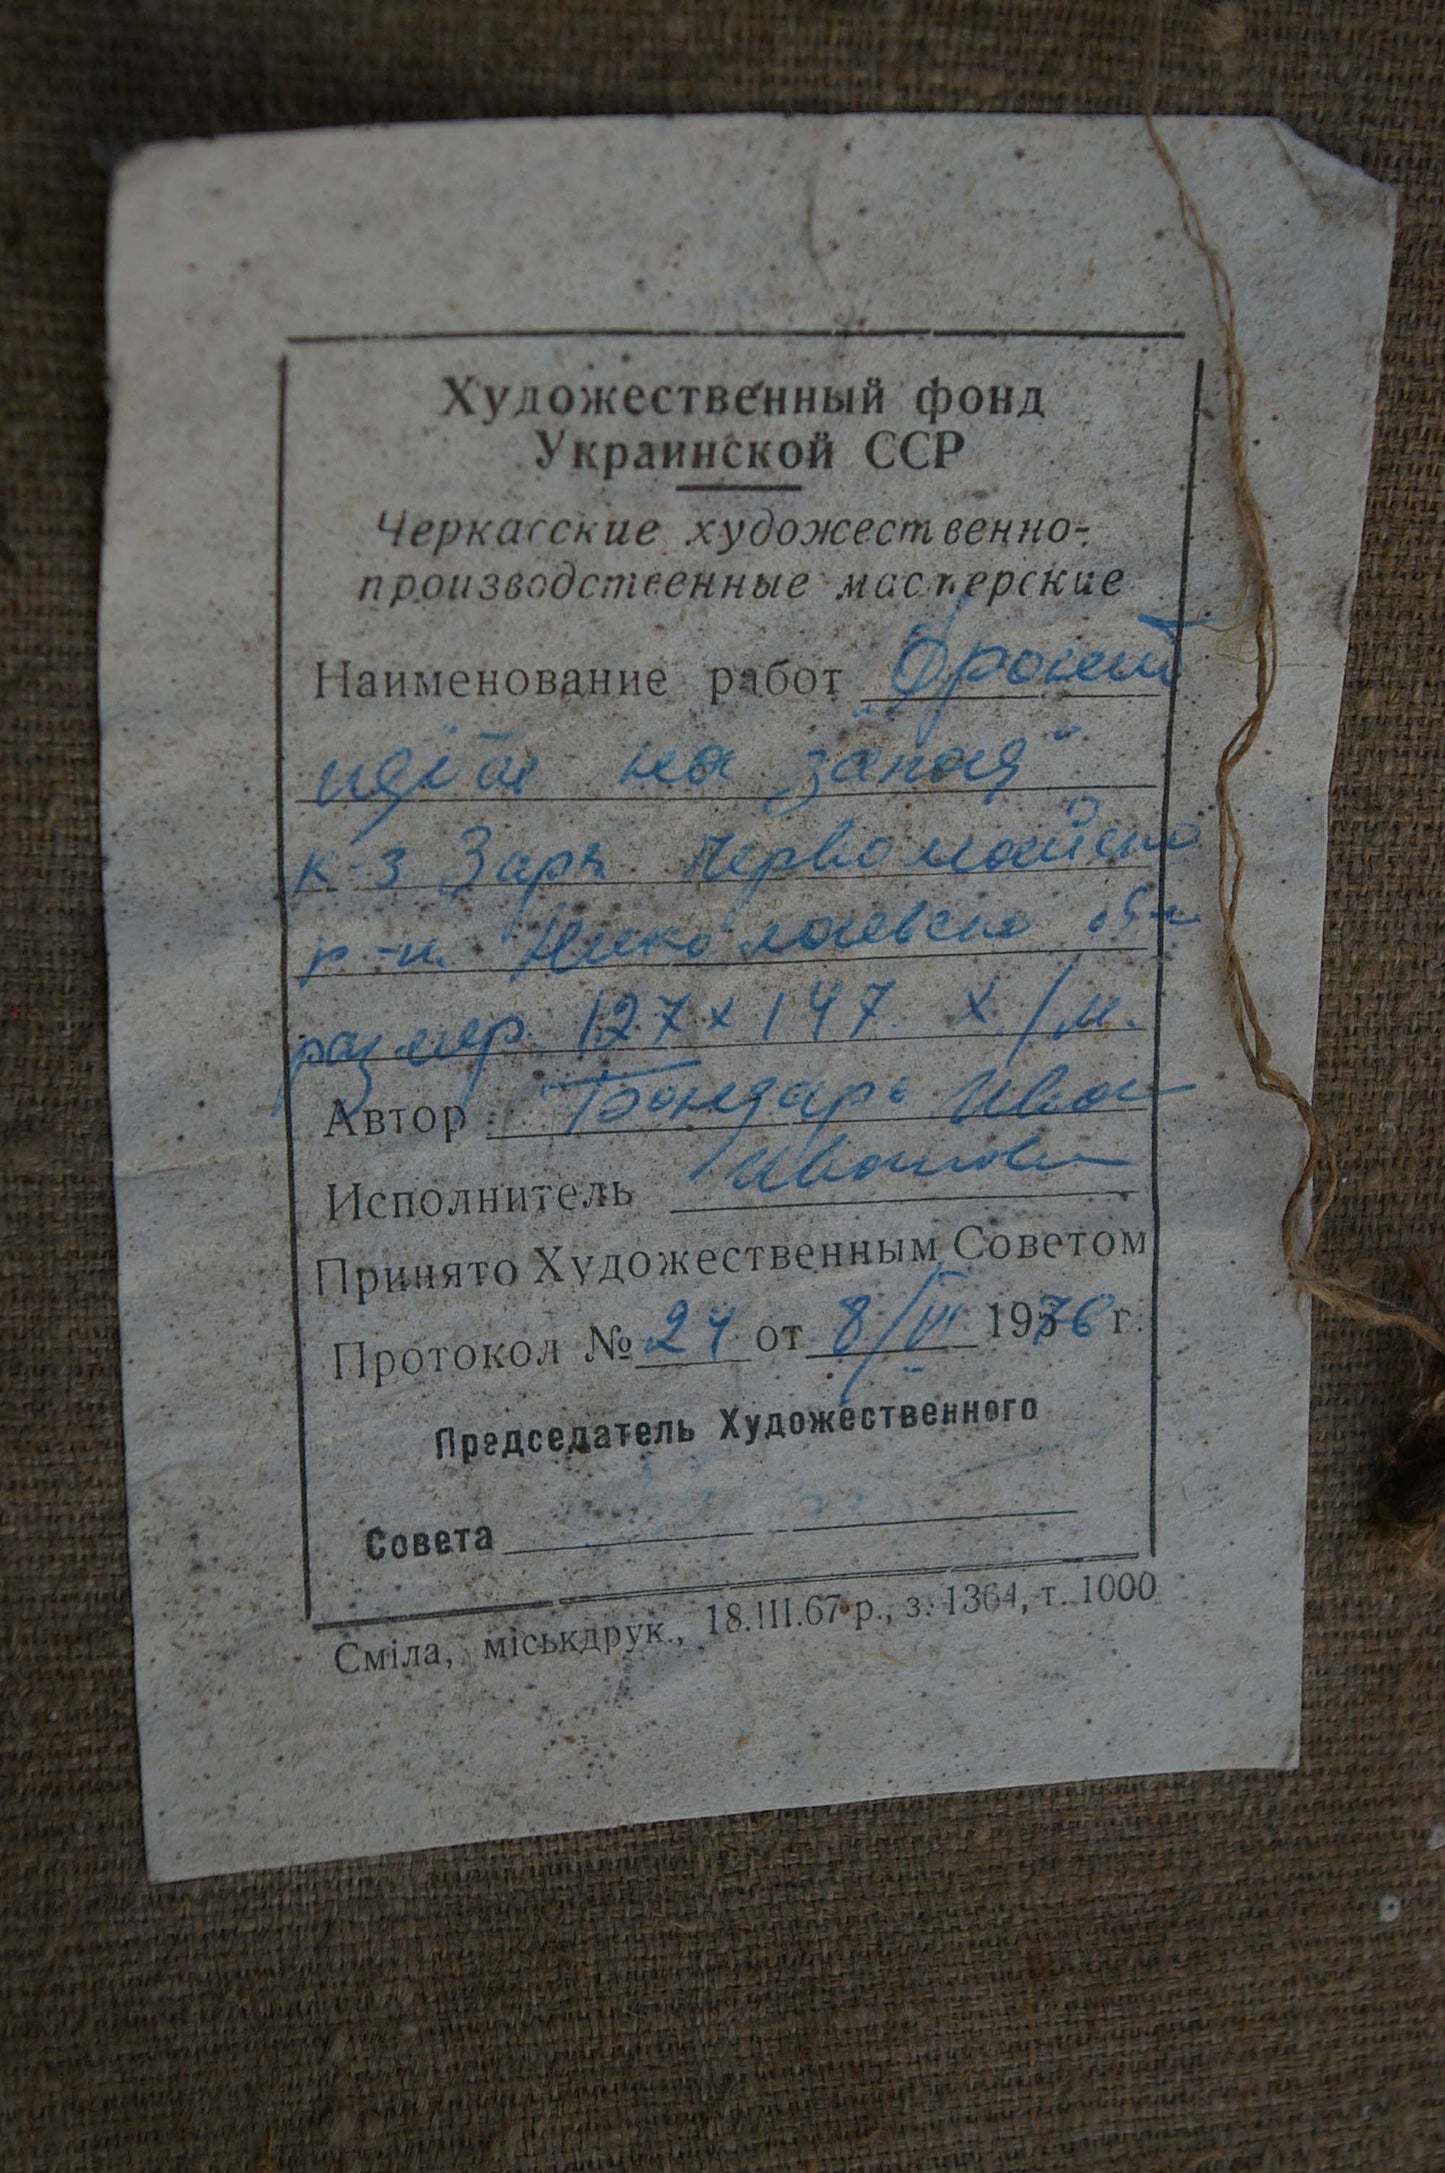 Художественный фонд
Украинской ССР
Черкасские художественно-
производственные мастерские
Наименование работ „Фронт
идёт на запад“
к-з Заря Первомайско
р-н. Николаевско об-и
размер. 127 х 147. х/м.
Автор Бондарь Иван
Исполнитель Иванови
Принято Художественным Советом
Протокол № 24 от 8/VI 1976 г.
Председатель Художественного
Совета
Сміла, міськдрук., 18.III.67 р., з. 1364, т. 1000